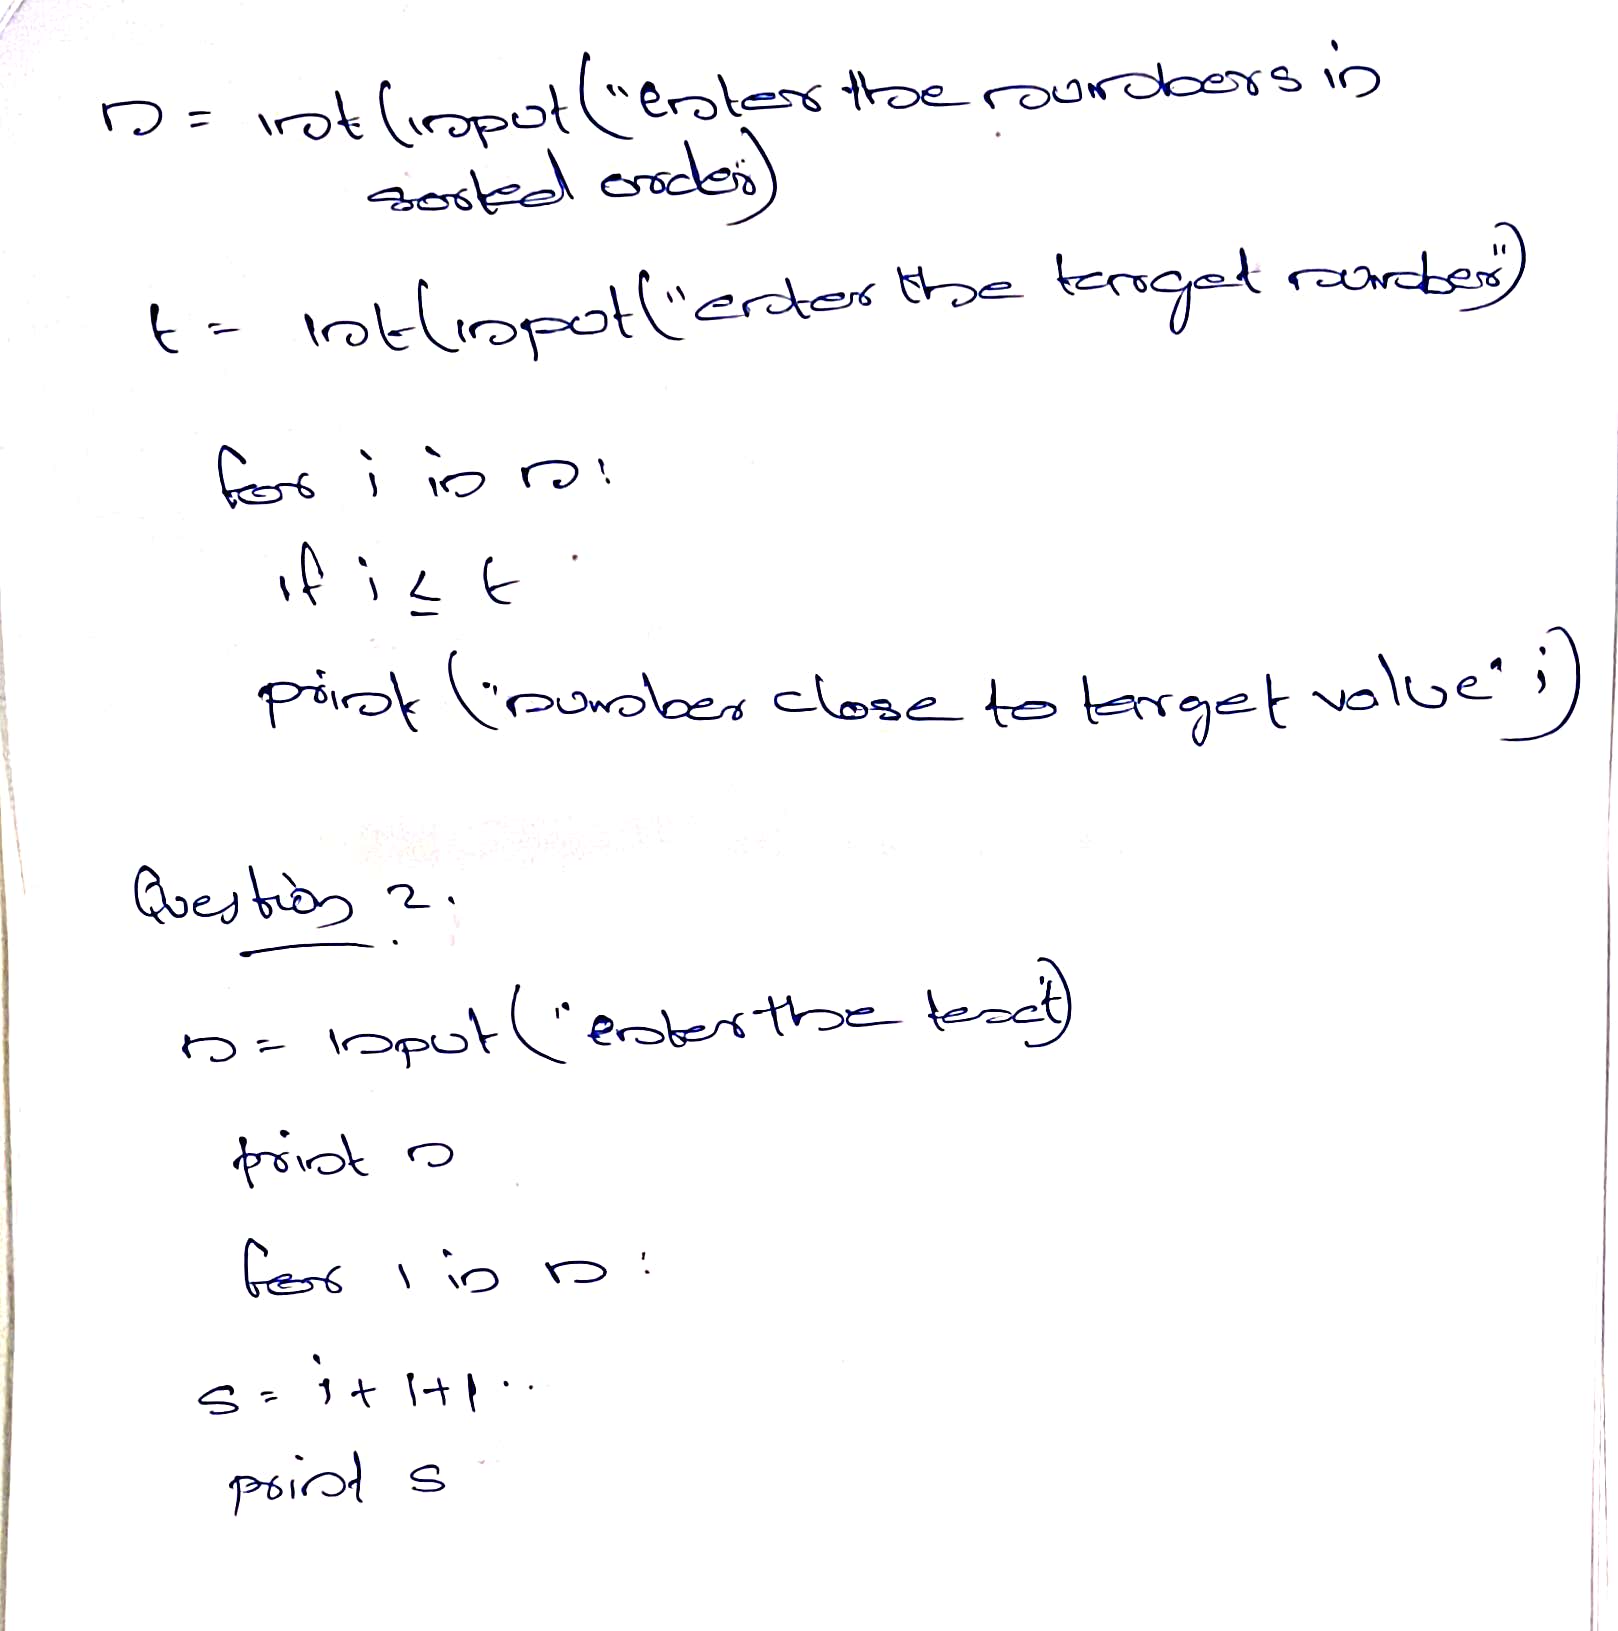 n = int(input("enter the numbers in
sorted order")
t = int(input("enter the target number")
for i in n:
if i ≤ t
print ("number close to target value" i)
Question 2.
n = input("enter the text")
print n
for i in n:
s = i + 1+1..
print s